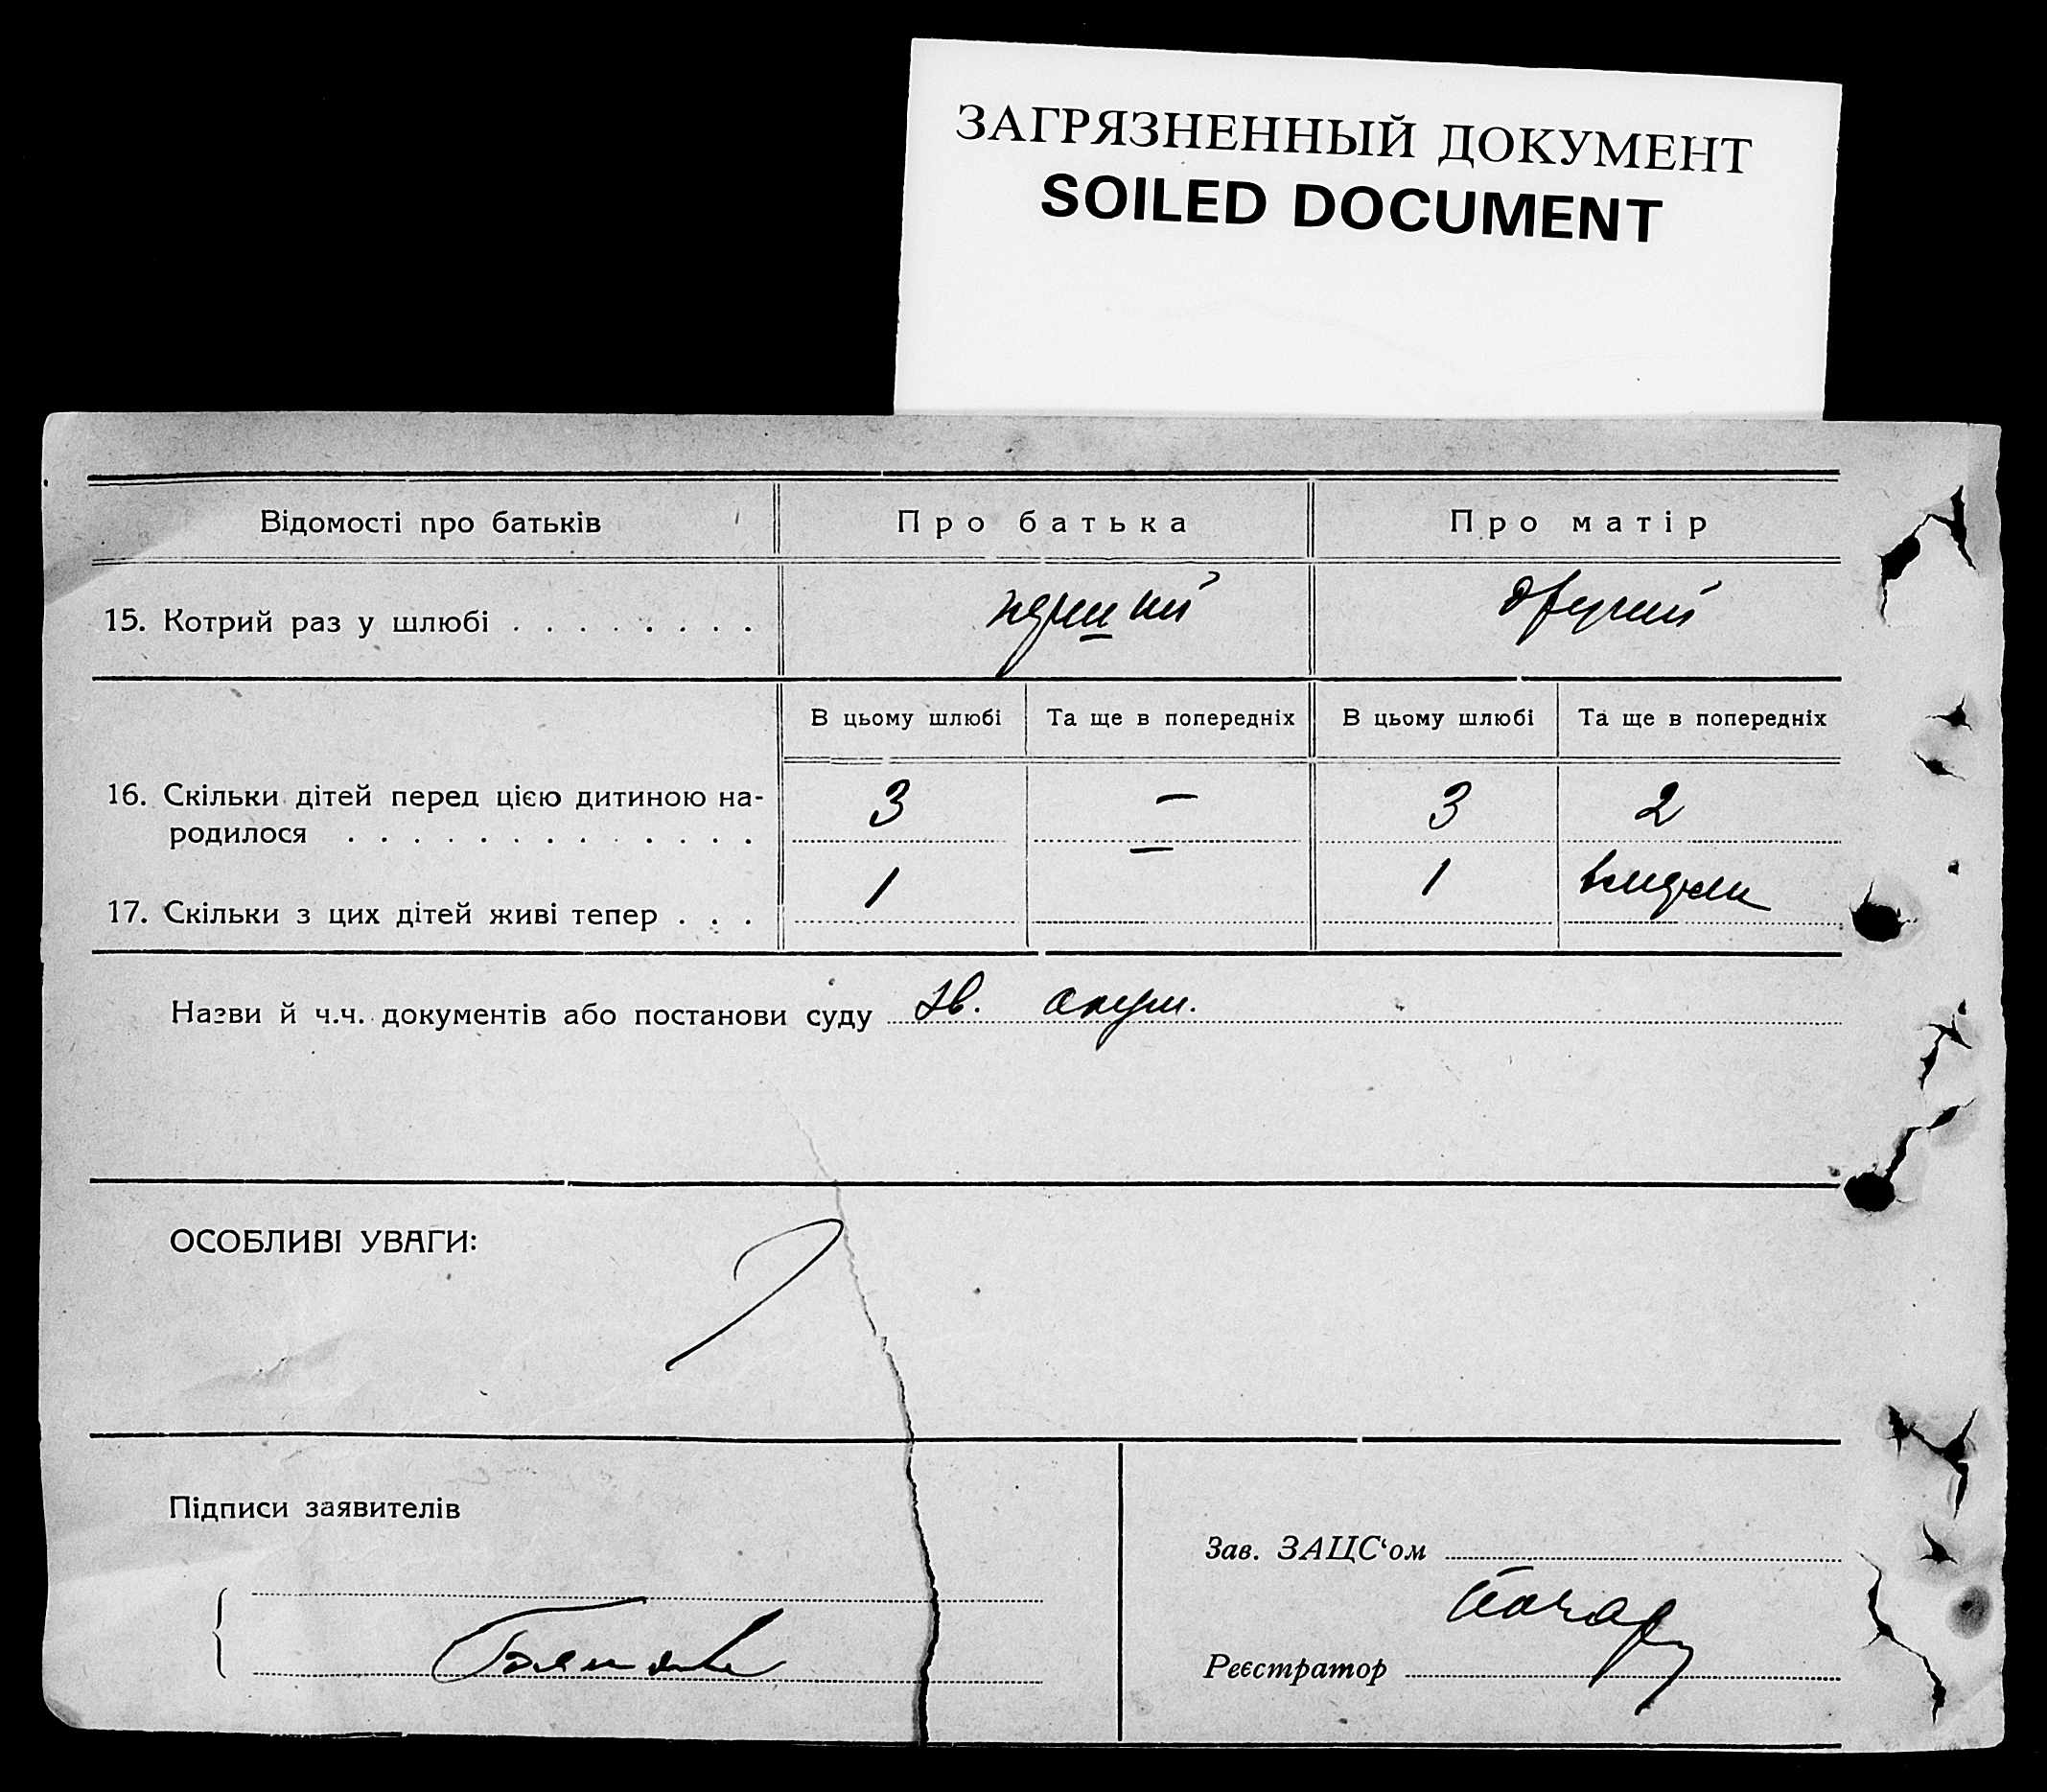 ЗАГРЯЗНЕННЫЙ ДОКУМЕНТ
SOILED DOCUMENT
Відомості про батьків
Про батька
Про матір
15. Котрий раз у шлюбі . . . . . . . .
перший
другий
В цьому шлюбі
Та ще в попередніх
В цьому шлюбі
Та ще в попередніх
16. Скільки дітей перед цією дитиною на-
родилося . . . . . . . . . . . . .
3
—
3
2
17. Скільки з цих дітей живі тепер . . .
1
—
1
Назви й ч.ч. документів або постанови суду
ОСОБЛИВІ УВАГИ:
Підписи заявителів
Зав. ЗАЦС‘ом
Реєстратор